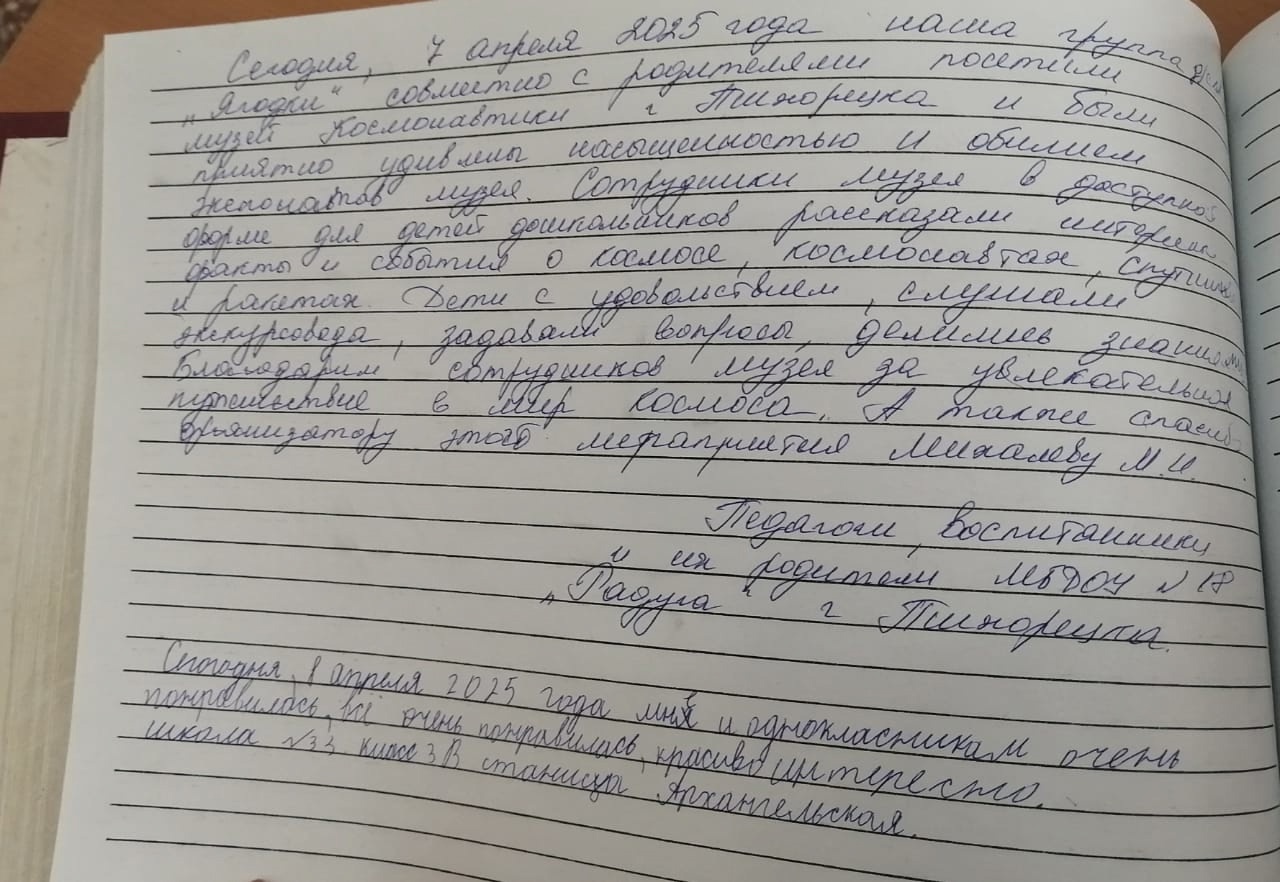 Сегодня, 7 апреля 2025 года наша группа
„Ягодки“ совместно с родителями посетили
музей Космонавтики г Тихорецка и были
приятно удивлены насыщенностью и обилием
экспонатов музея. Сотрудники музея в доступной
форме для детей дошкольников рассказали
факты и события о космосе, космонавтах,
и ракетах. Дети с удовольствием, слушали
экскурсовода, задавали вопросы, делились знаниями
Благодарим сотрудников музея за увлекательное
путешествие в мир космоса. А также спасибо
организатору этого мероприятия Михалеву М.И.
Педагоги, воспитанники
и их родители МБДОУ №18
„Радуга“ г Тихорецка.
Сегодня, 8 апреля 2025 года мне и однокласникам очень
понравилось, всё очень понравилась, красиво интересно.
школа №33 класс 3В станица Архангельская.